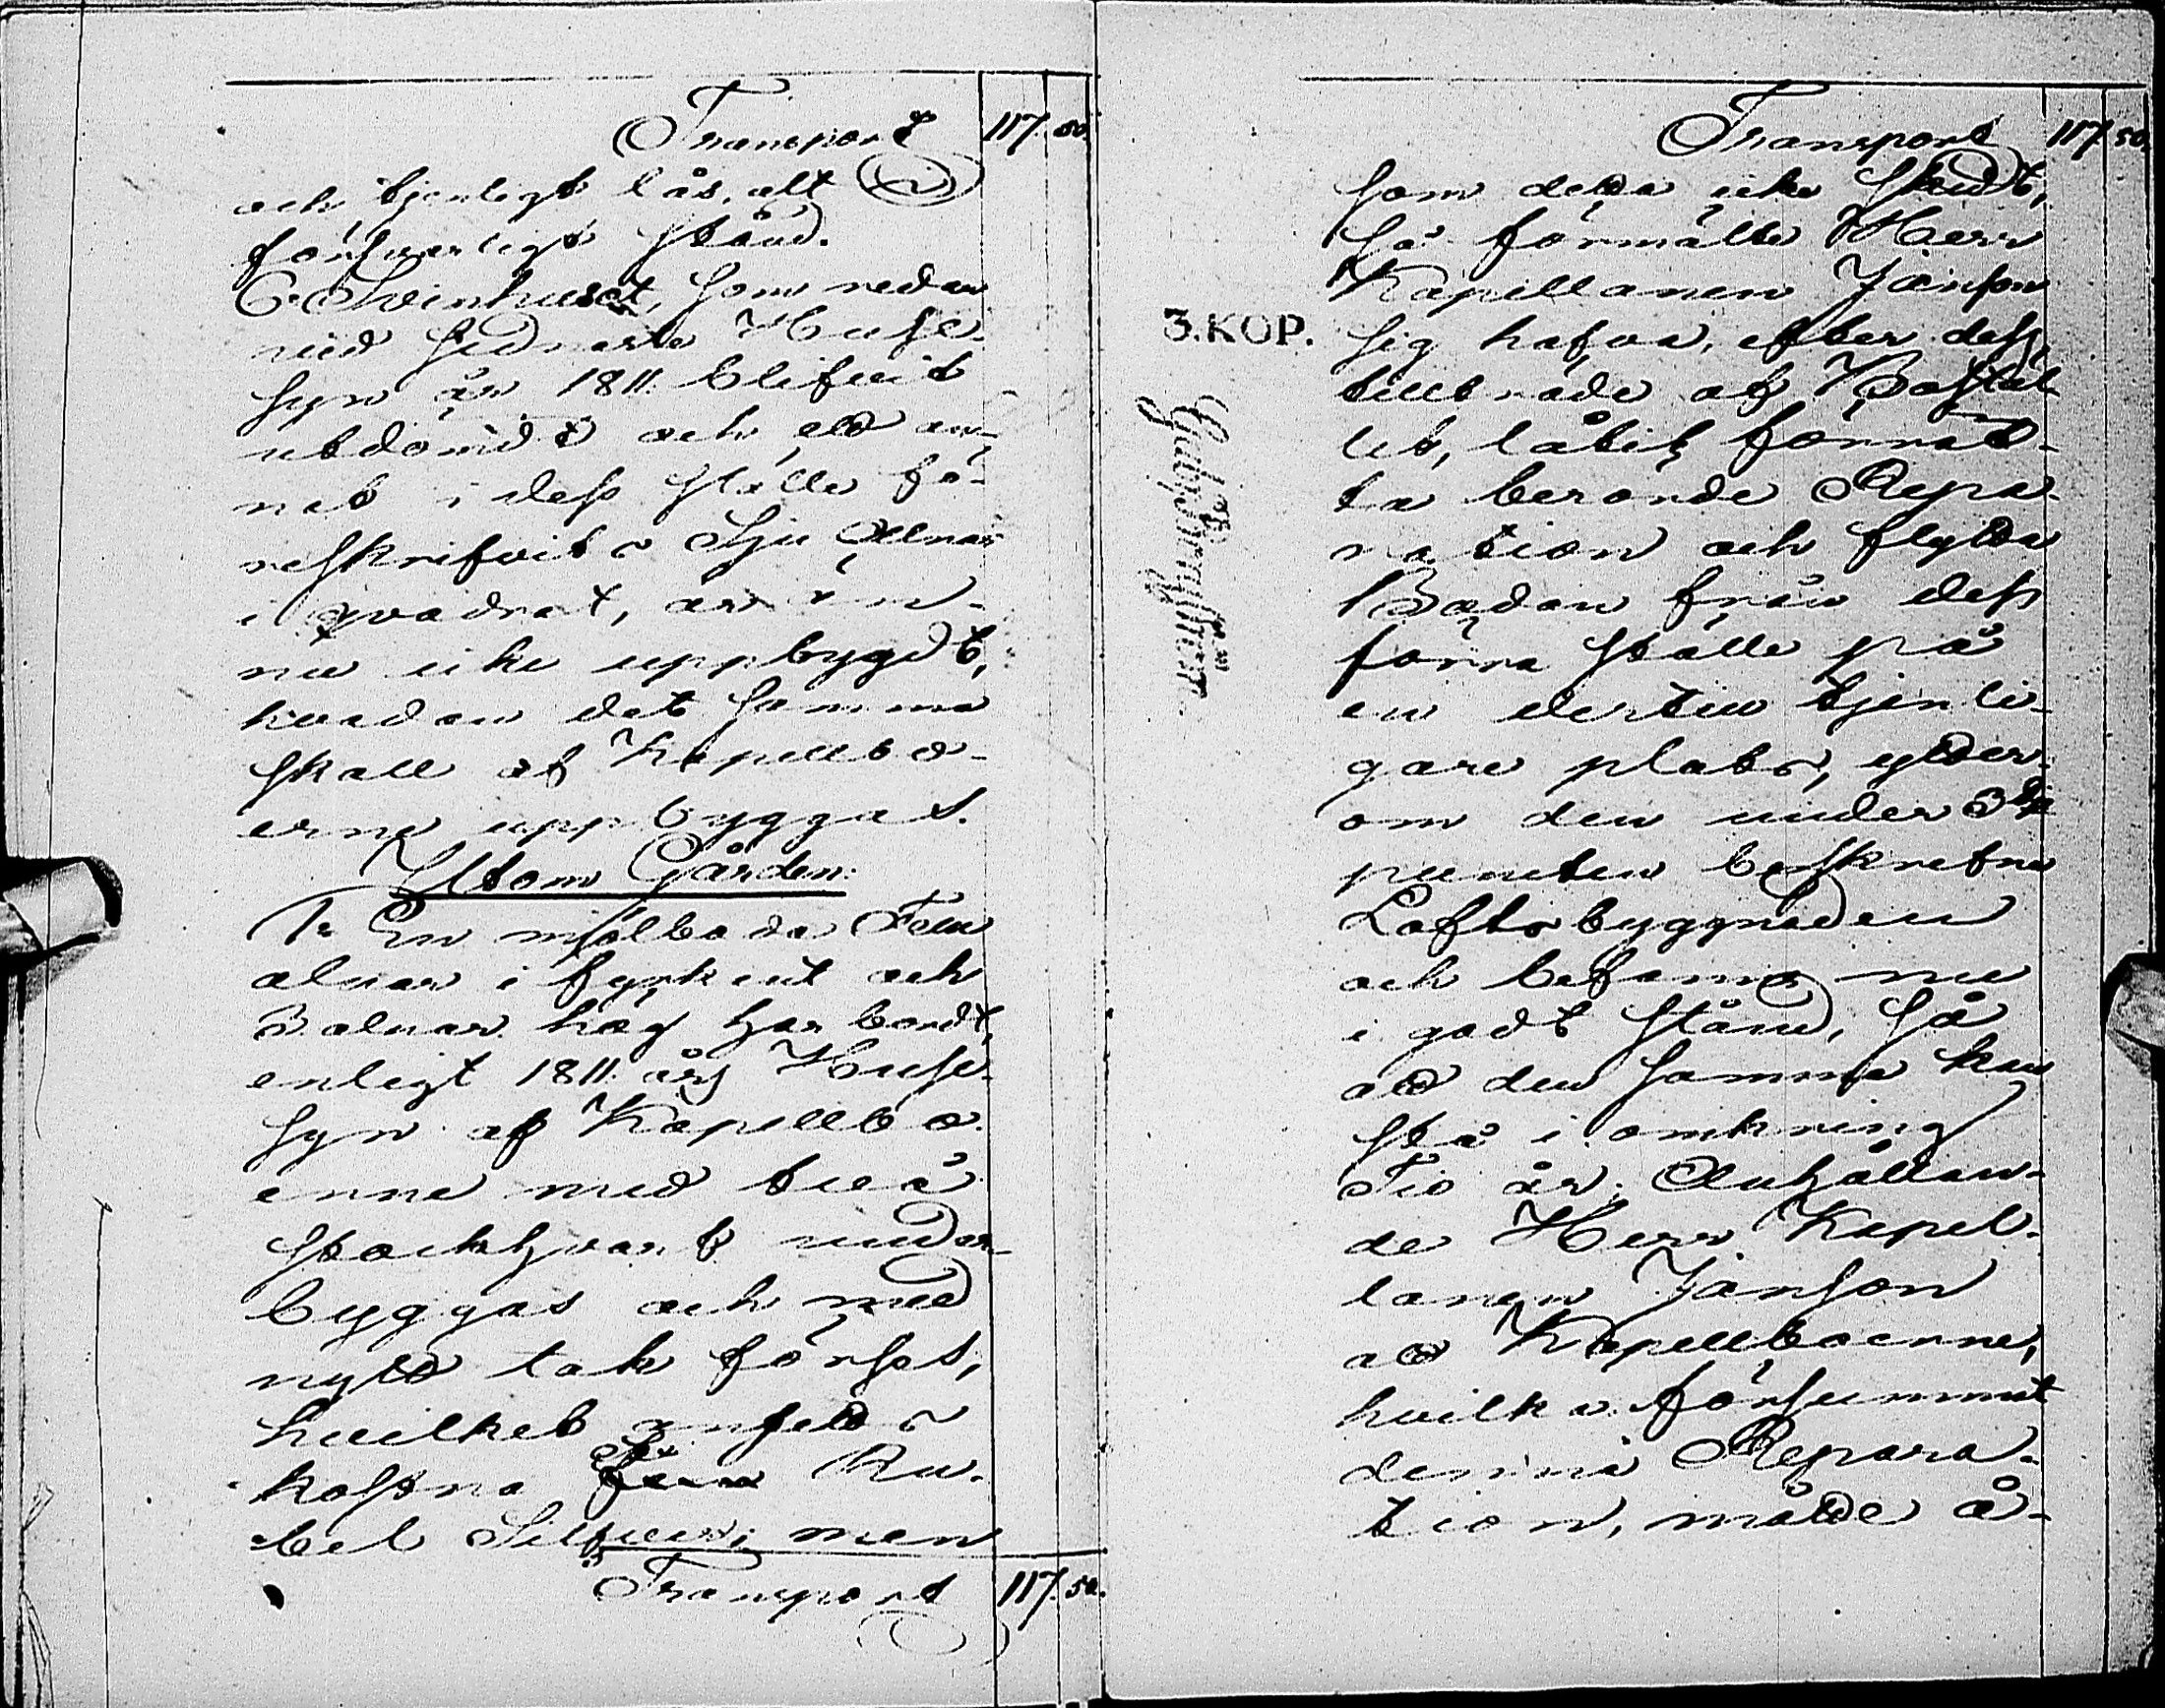 Transport 117. 50.
och tjenligt lås, alt i
försvarligt stånd.
6:o Svinhuset, som redan
vid sednaste Huse-
syn år 1811 blifvit
utdömdt och ett an-
nat i dess ställe fö-
reskrifvit, Sju Alnar
i qvadrat, är än-
nu icke uppbygdt,
hvadan det samma
skall af Kapellbo-
erne uppbyggas.
Utom Gården.
1:o En mjölboda Fem
alnar i fyrkant och
3 alnar hög har bordt,
enligt 1811 års Huse-
syn af Kapellbo-
erne med två
stockhvarf under-
byggas och med
nytt tak förses,
hvilket ansetts
kosta Sex Ru-
bel Silfver; men
Transport 117. 50.
Transport 117. 50.
som detta icke skedt,
så förmälte Herr
Kapellanen Jänson
sig hafva, efter dess
tillträde af Bostäl-
let, låtit förrät-
ta berörde Repa-
ration och flytta
Bodan från dess
förra ställe på
en dertill tjenli-
gare plats, ytter-
om den under 3:dje
puncten beskrefne
Loftsbyggnaden
och befanns nu
i godt stånd, så
att den samma kan
stå i omkring
Tio år. Anhållan-
de Herr Kapel-
lanen Jänson
att Kapellboerne,
hvilka försummat
denna Repara-
tion, måtte å-
3.KOP.